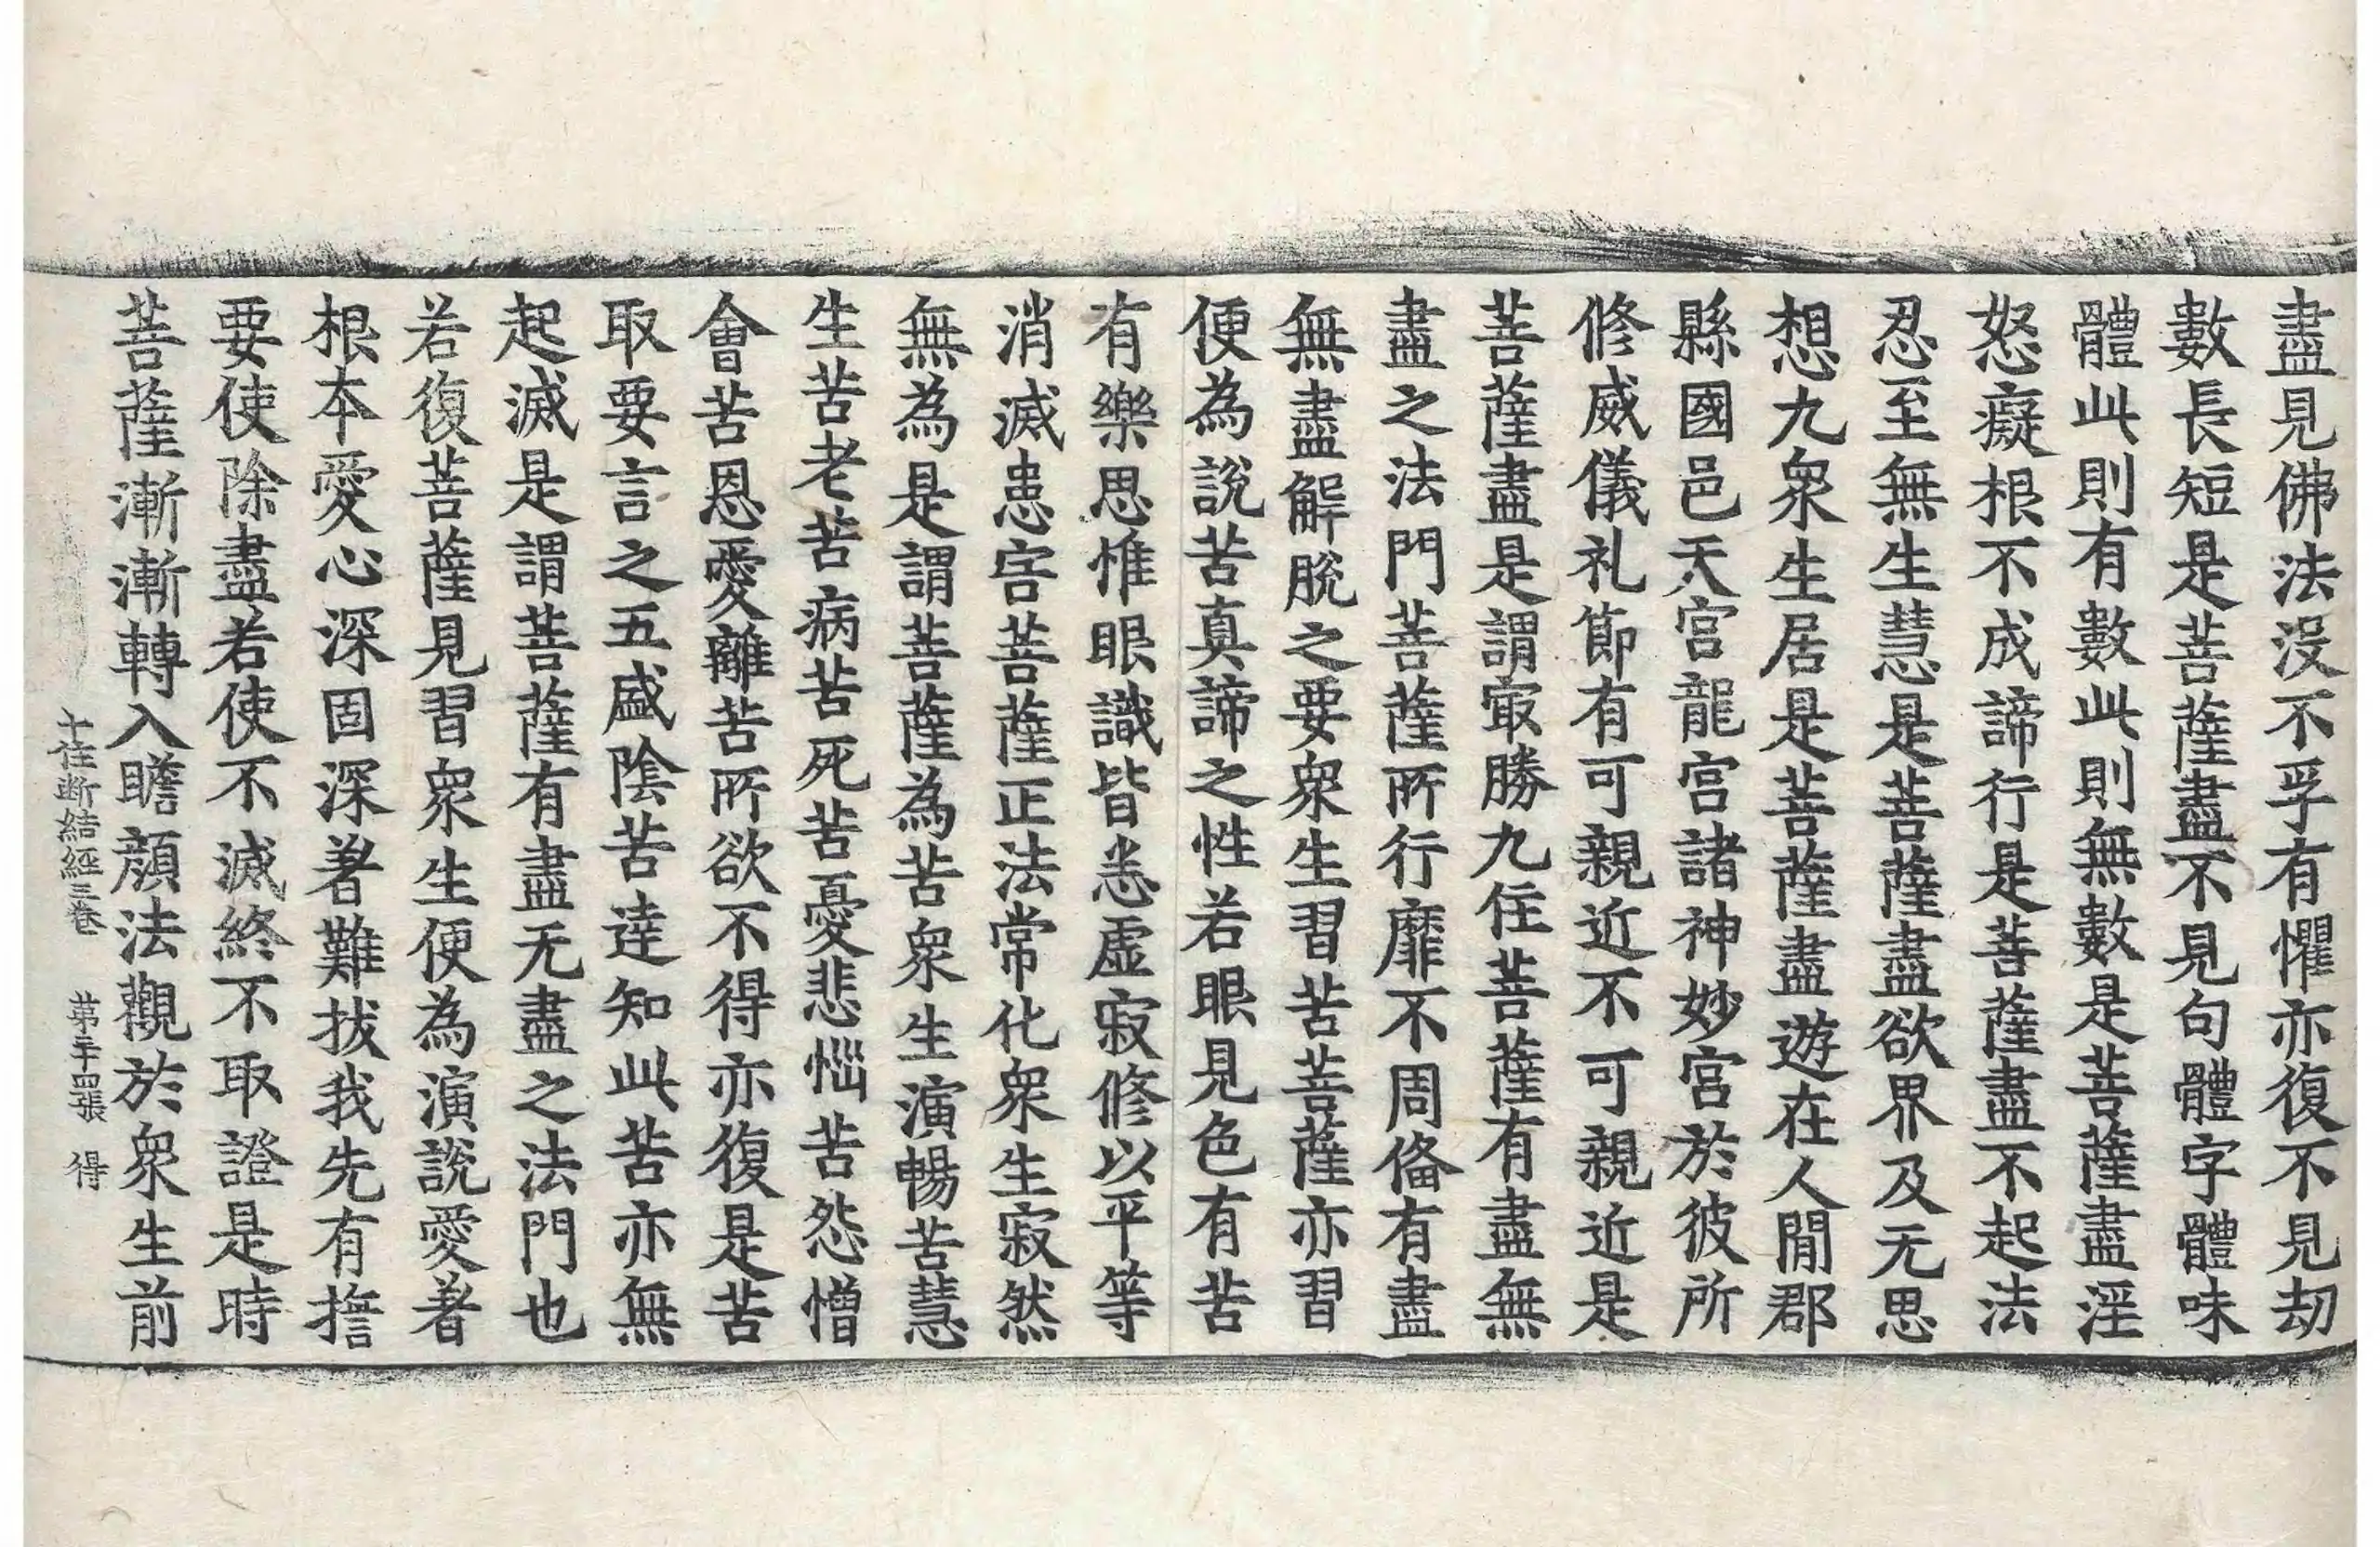 盡見佛法沒不孚有懼亦復不見劫
數長短是菩薩盡不見句體字體味
體此則有數此則無數是菩薩盡淫
怒癡根不成諦行是菩薩盡不起法
忍至無生慧是菩薩盡欲界及无思
想九衆生居是菩薩盡遊在人閒郡
縣國邑天宮龍宮諸神妙宮於彼所
修威儀礼節有可親近不可親近是
菩薩盡是謂冣勝九住菩薩有盡無
盡之法門菩薩所行靡不周俻有盡
無盡解脫之要衆生習苦菩薩亦習
便為說苦真諦之性若眼見色有苦
有樂思惟眼識皆悉虛寂修以平等
消滅患害菩薩正法常化衆生寂然
無為是謂菩薩為苦衆生演暢苦慧
生苦老苦病苦死苦憂悲惱苦怨憎
會苦恩愛離苦所欲不得亦復是苦
取要言之五盛陰苦達知此苦亦無
起滅是謂菩薩有盡无盡之法門也
若復菩薩見習衆生便為演說愛著
根本愛心深固深著難拔我先有誓
要使除盡若使不滅終不取證是時
菩薩漸漸轉入瞻顏法觀於衆生前
十住断結經三卷 苐二十四張 得